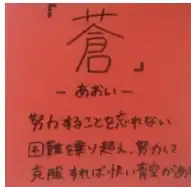 「蒼」
－あおい－
努力することを忘れない
困難を乗り超え、努力して
克服すれば快い青空があ